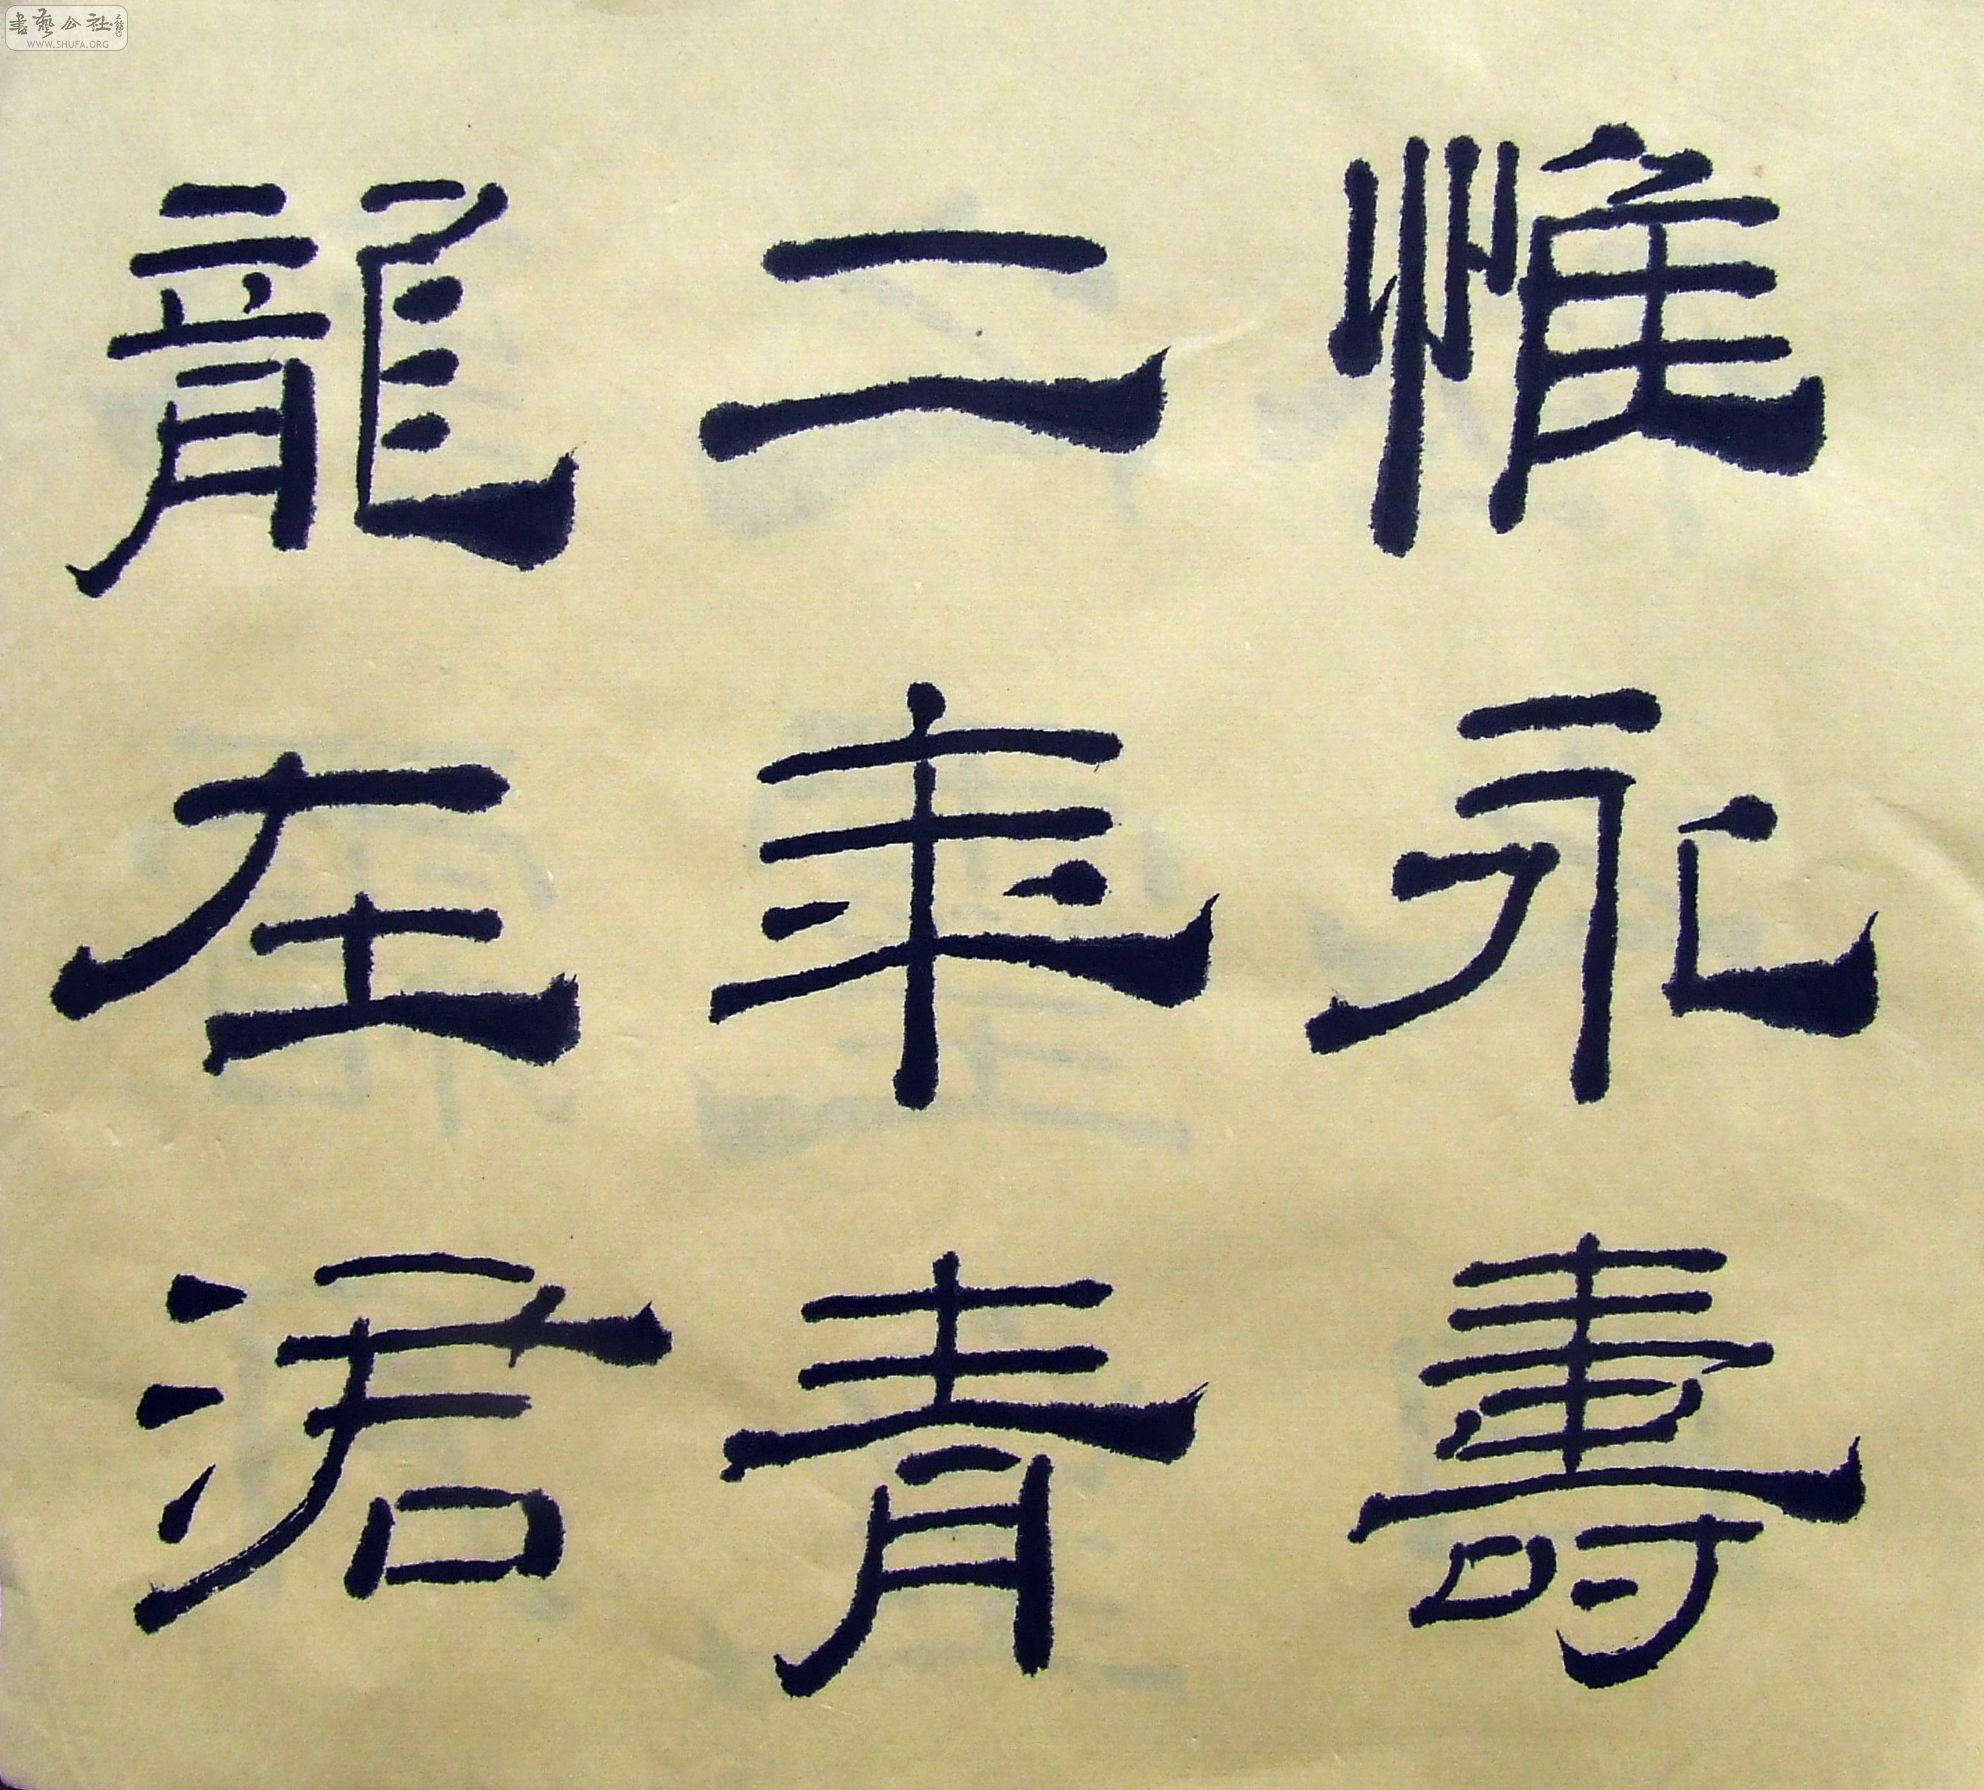 惟永壽
二年青
龍在涒
書藝公社
WWW.SHUFA.ORG